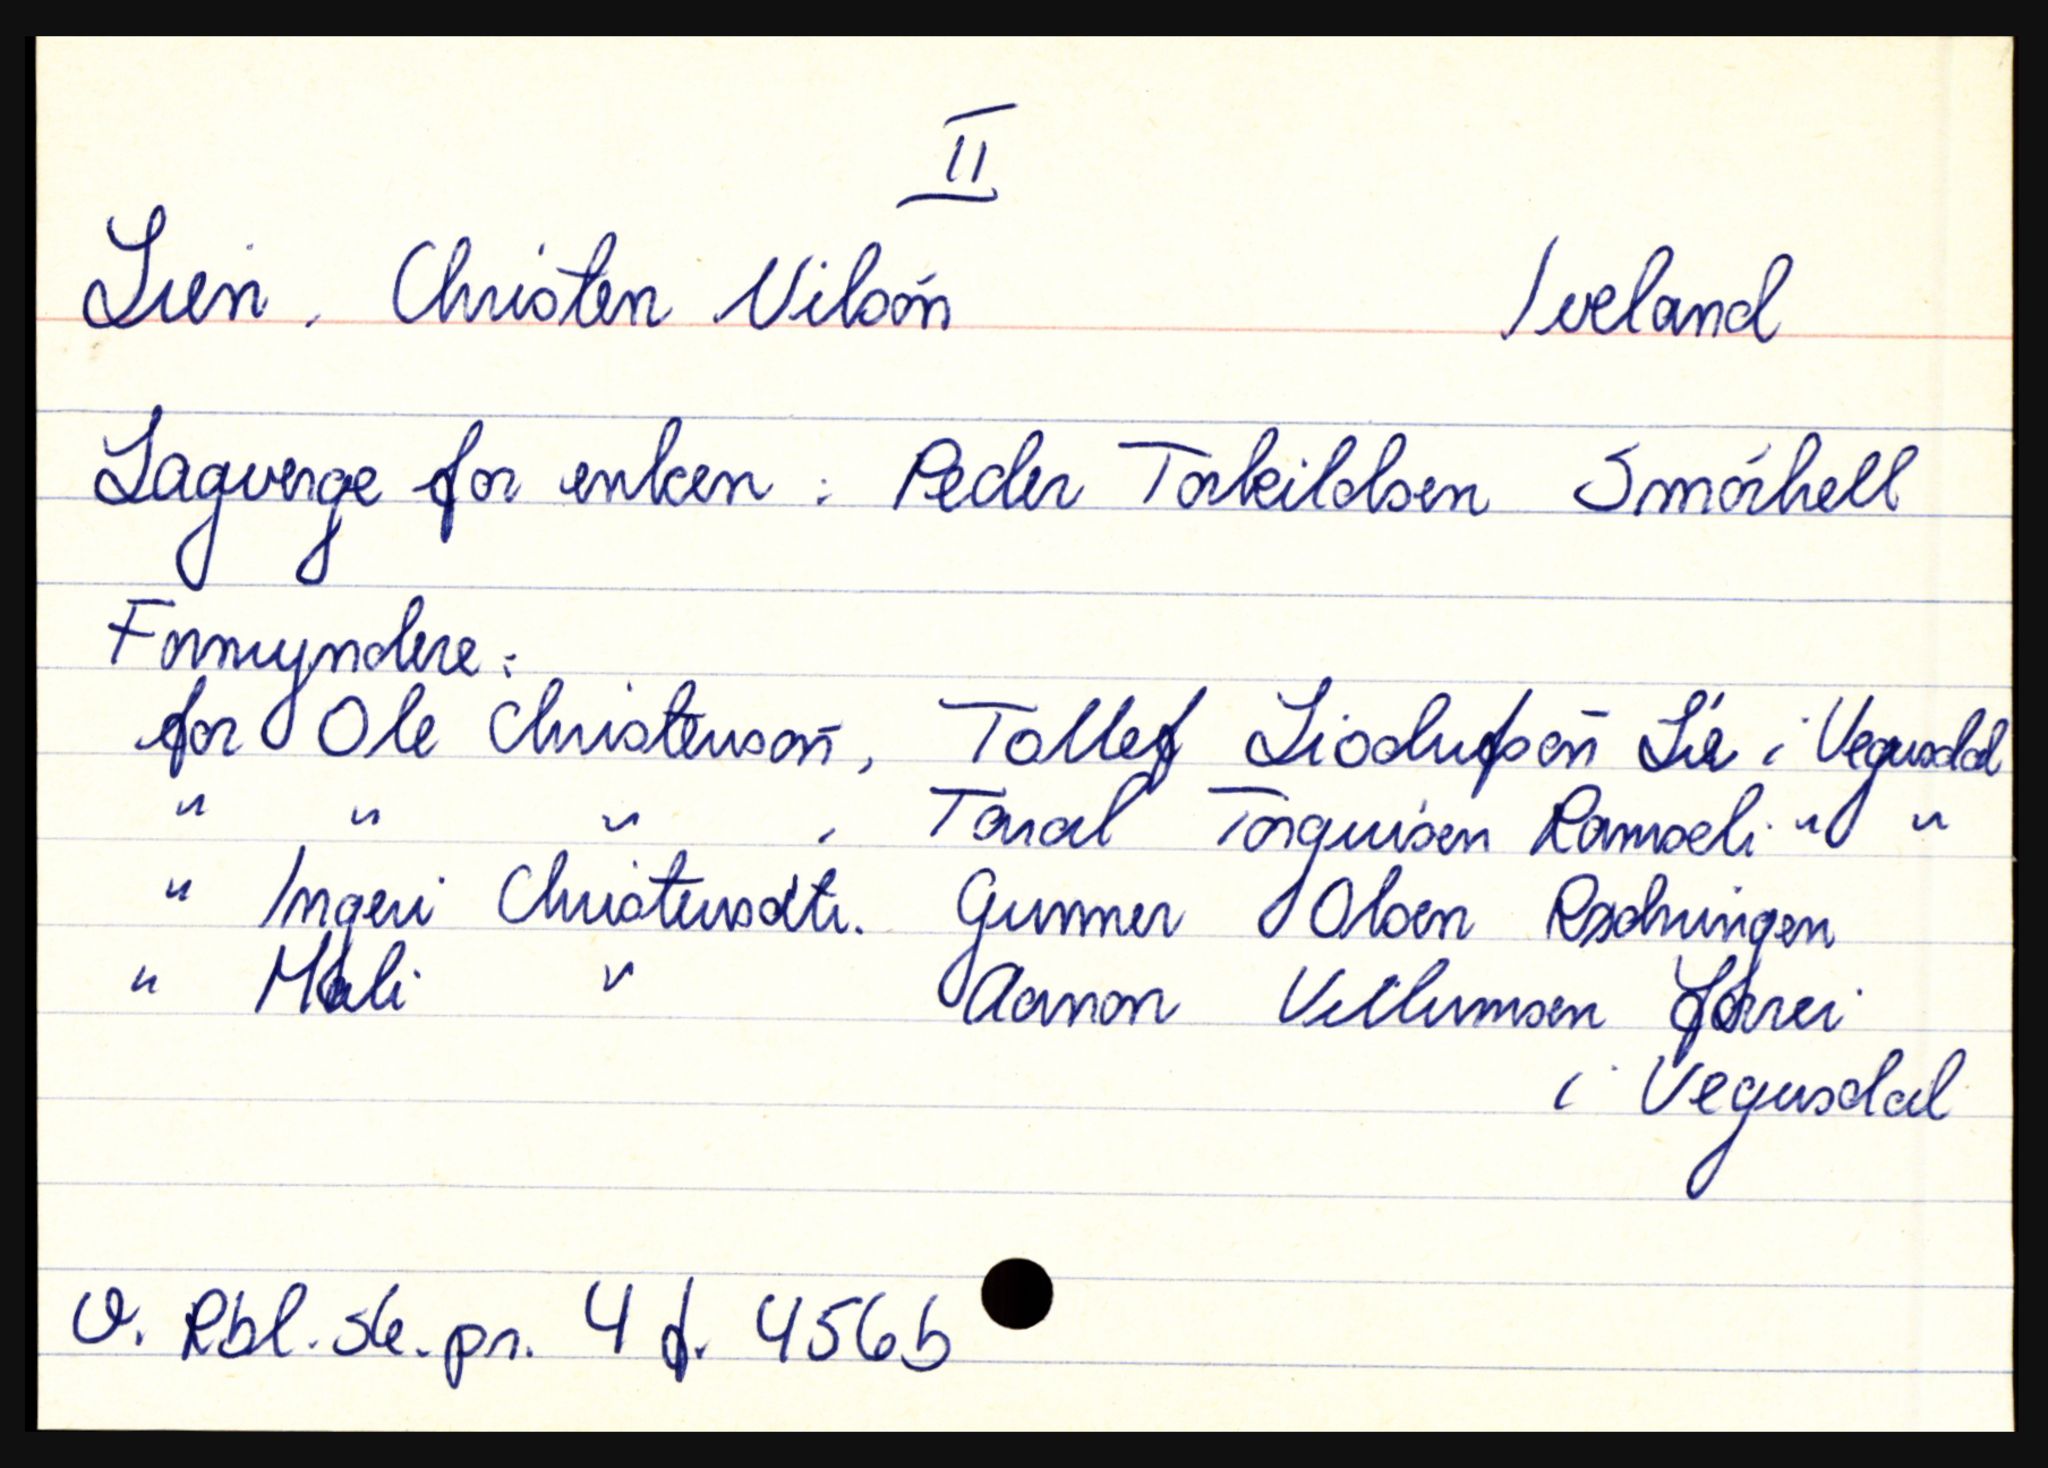 II
Lien, Christen Nilsøn Iveland
Lagverge for enken: Peder Torkildsen Smørhell
Formyndere:
for Ole Christensøn, Tollef Liodufsøn Lie i Vegusdal
" " " , Toral Torguisen Ramseli " "
" Ingeri Christensdtr. Gunner Olsen
" Mali " Aanon Villumsen
i Vegusdal
V. Rbl. sk. pr. 4 f. 456b